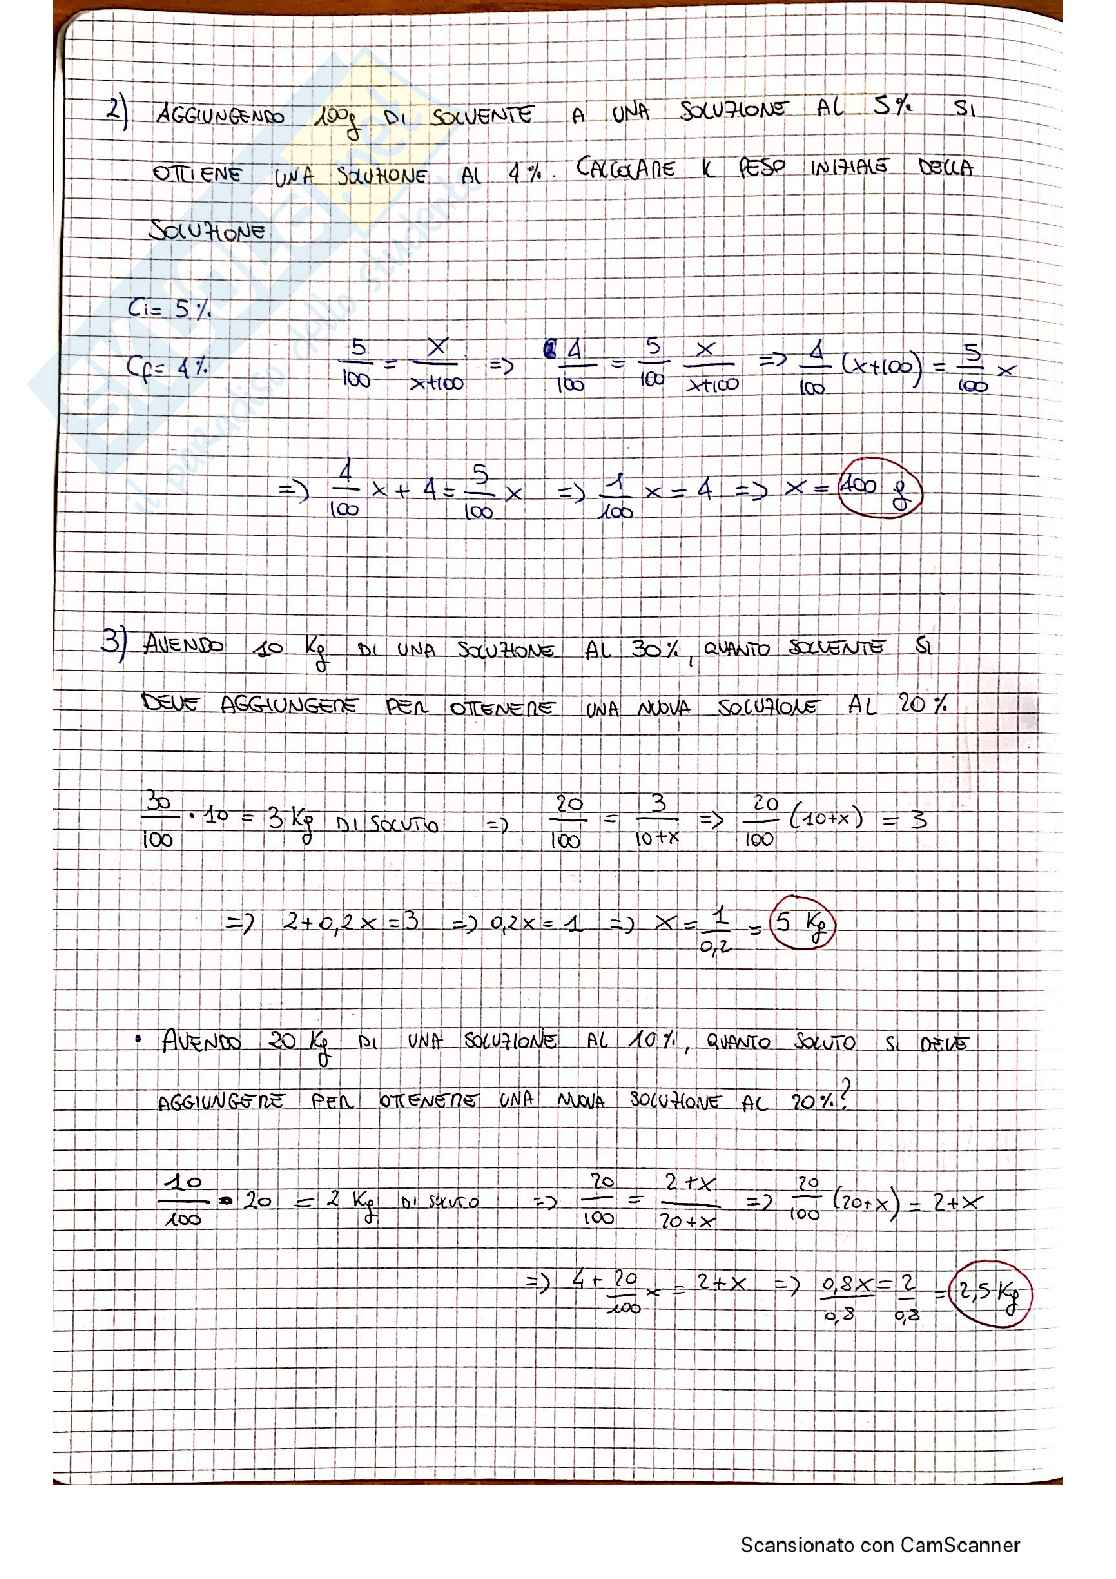 2) AGGIUNGENDO 100g DI SOLVENTE A UNA SOLUZIONE AL 5% SI
OTTIENE UNA SOLUZIONE AL 4%. CALCOLARE IL PESO INIZIALE DELLA
SOLUZIONE
Ci = 5%
Cf = 4% 5/100 = x/x+100 => 4/100 = 5/100 x/x+100 => 4/100 (x+100) = 5/100 x
=> 4/100 x + 4 = 5/100 x => 1/100 x = 4 => x = 400 g
3) AVENDO 10 Kg DI UNA SOLUZIONE AL 30%, QUANTO SOLVENTE SI
DEVE AGGIUNGERE PER OTTENERE UNA NUOVA SOLUZIONE AL 20%
30/100 · 10 = 3 Kg DI SOLUTO => 20/100 = 3/10+x => 20/100 (10+x) = 3
=> 2+0,2x = 3 => 0,2x = 1 => x = 1/0,2 = 5 Kg
· AVENDO 20 Kg DI UNA SOLUZIONE AL 10%, QUANTO SOLUTO SI DEVE
AGGIUNGERE PER OTTENERE UNA NUOVA SOLUZIONE AL 20%?
10/100 · 20 = 2 Kg DI SOLUTO => 20/100 = 2+x/20+x => 20/100 (20+x) = 2+x
=> 4 + 20/100 x = 2+x => 0,8x/0,8 = 2/0,8 = 2,5 Kg
Scansionato con CamScanner